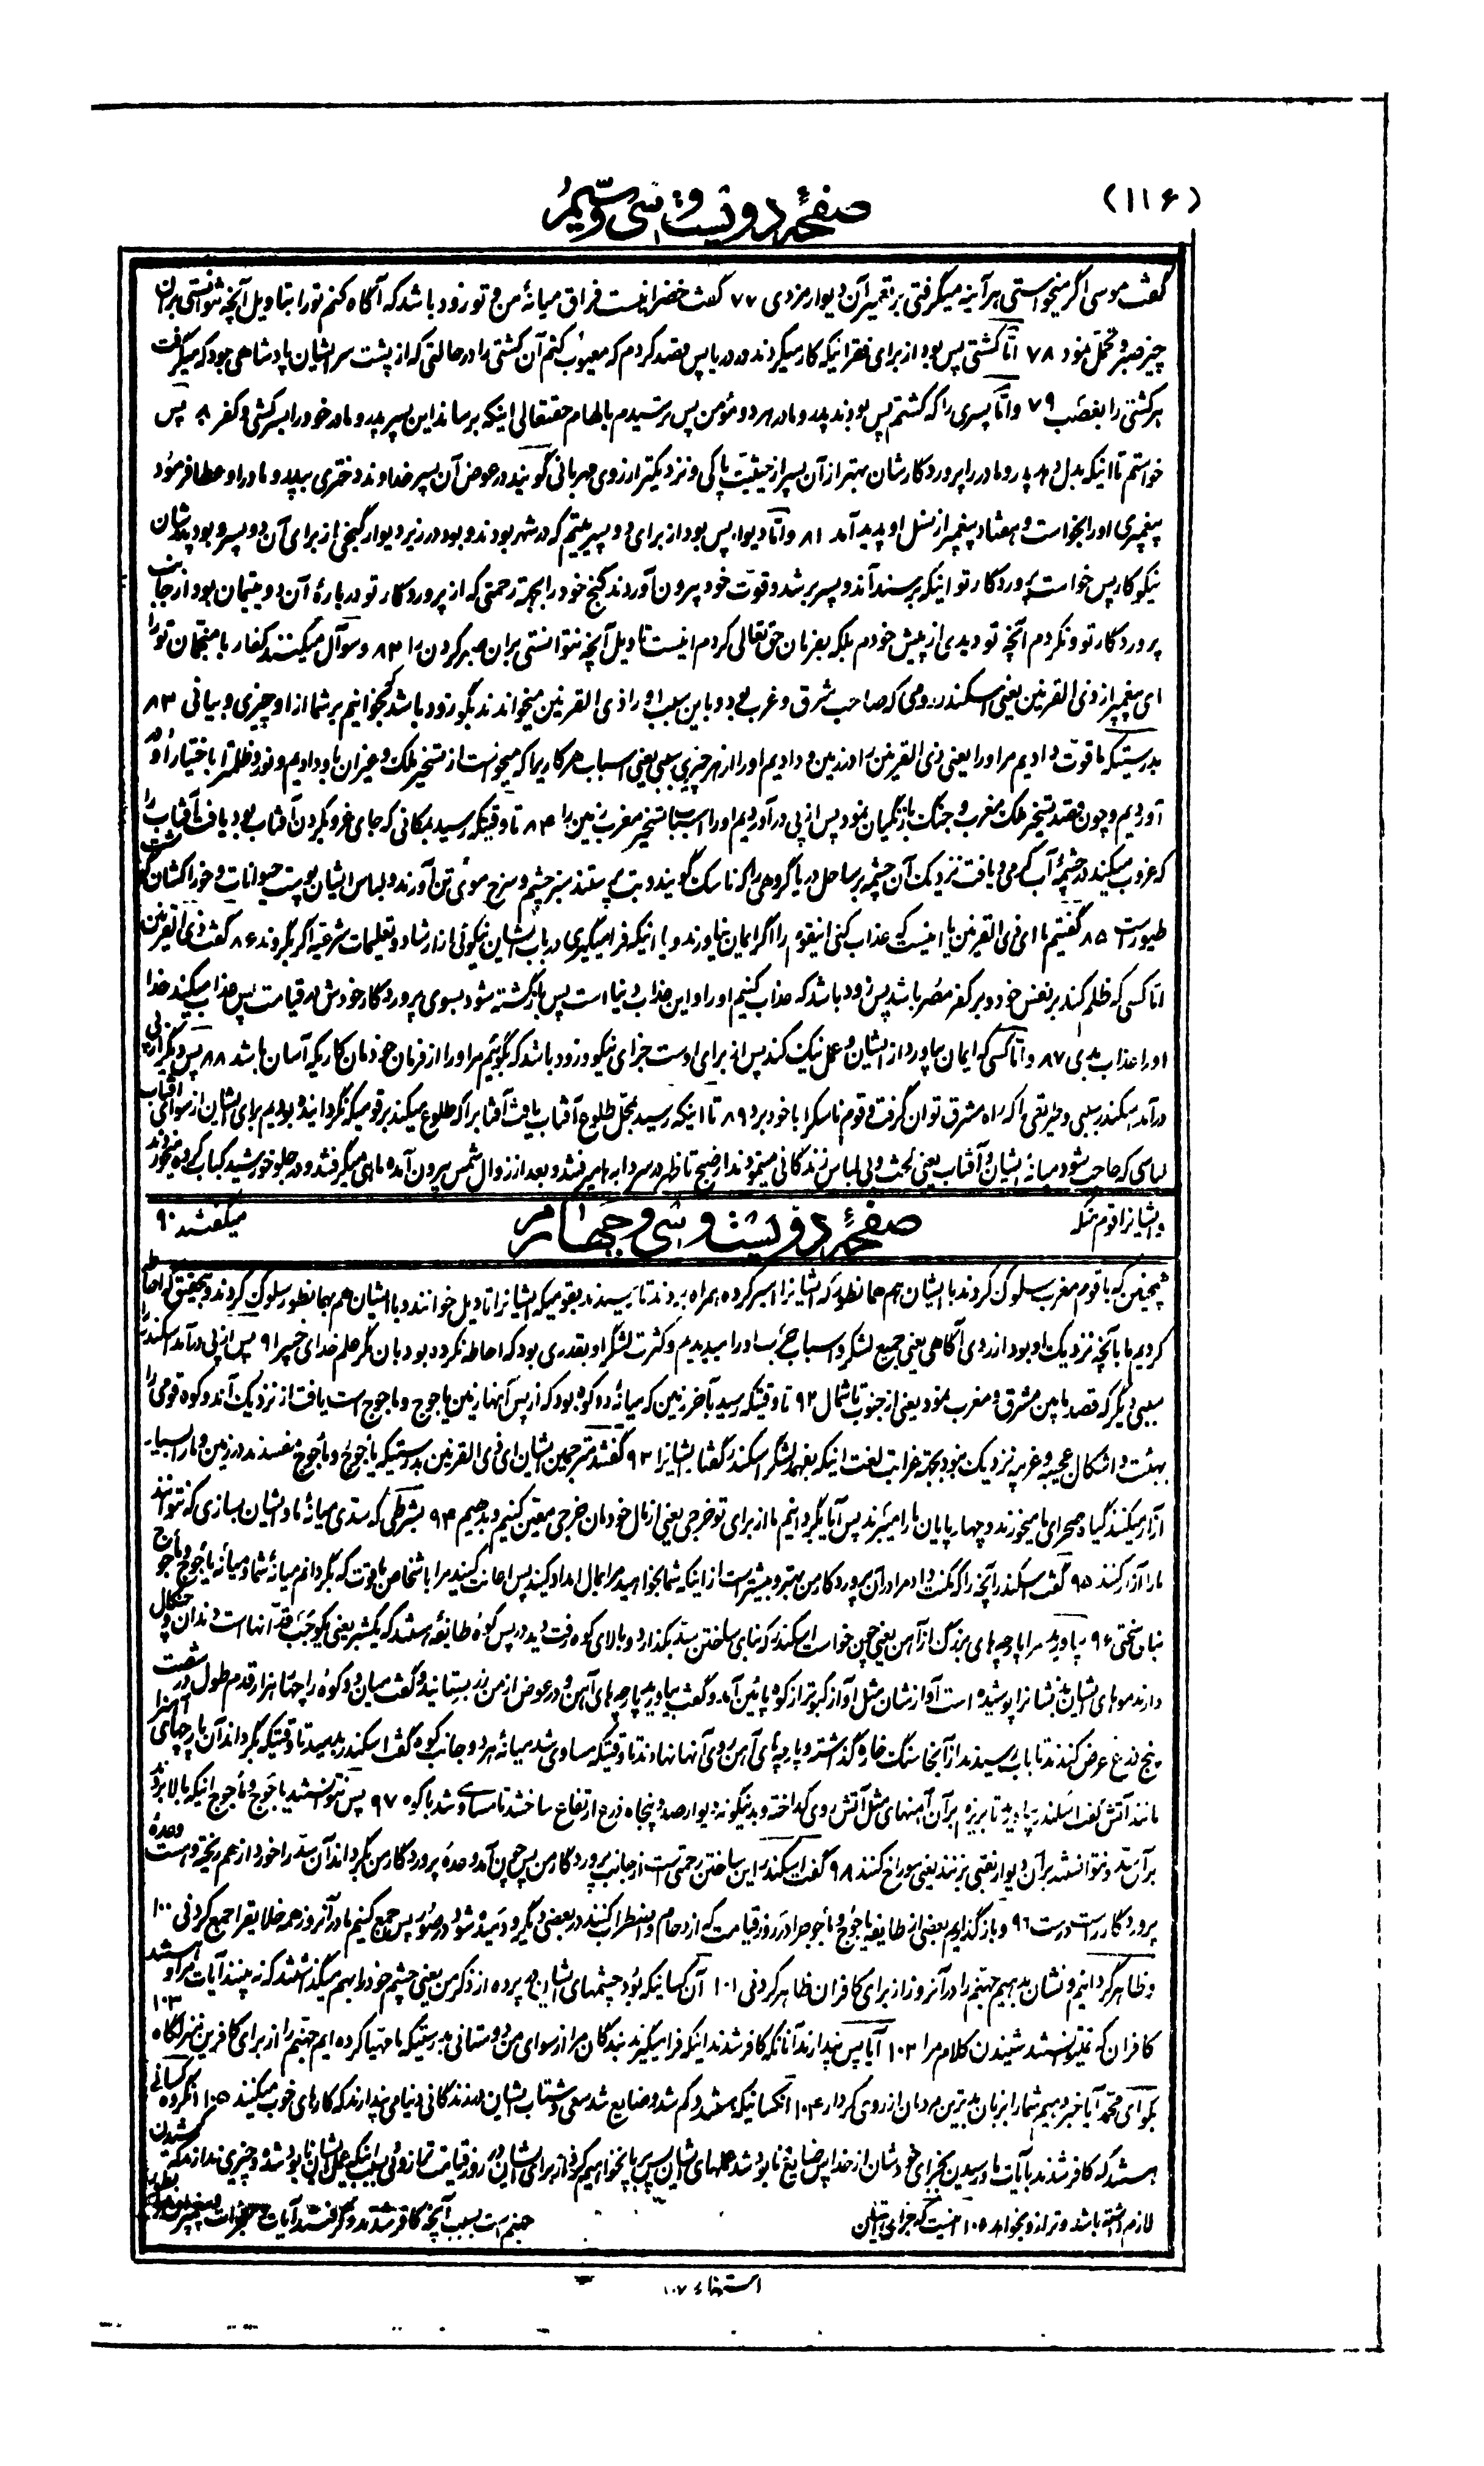 (۱۱۶)
صفحهٔ دویست و سی و سیم
گفت موسی اگر میخواستی هر آینه میگرفتی بر تعمیر آن دیوار مزدی ۷۷ گفت خضر اینست فراق میانهٔ من و تو زود باشد که آگاه کنم تو را بتاویل آنچه نتوانستی بران
چیز صبر و تحمل نمود ۷۸ امّا کشتی پس بود از برای فقرائیکه کار میکردند در دریا پس قصد کردم که معیوب کنم آن کشتی را در حالتی که از پشت سر ایشان پادشاهی بود که میگرفت
هر کشتی را بغصب ۷۹ و امّا پسری را که کشتم پس بودند پدر و مادر هر دو مؤمن پس ترسیدم بالهام حقتعالی اینکه برساند این پسر پدر و مادر خود را بسرکشی و کفر ۸۰ پس
خواستم تا اینکه بدل دهد پدر و مادر را پروردگارشان بهتر از آن پسر از حیثیت پاکی و نزدیکتر از روی مهربانی گویند در عوض آن پسر خداوند دختری بپدر و مادر او عطا فرمود
پیغمبری او را بخواست و هفتاد پیغمبر از نسل او پدید آمد ۸۱ و امّا دیوار پس بود از برای دو پسر یتیم که در شهر بودند و بود در زیر دیوار گنجی از برای آن دو پسر و بود پدرشان
نیکوکار پس خواست پروردگار تو اینکه برسند آن دو پسر برشد و قوّت خود بیرون آوردند گنج خود را بجهة رحمتی که از پروردگار تو درباره آن دو یتیمان بود از جانب
پروردگار تو و نکردم آنچه تو دیدی از پیش خودم بلکه بفرمان حق تعالی کردم اینست تاویل آنچه نتوانستی بران صبر کردن را ۸۲ و سوآل میکنند کفار با منجّمان تو را
ای پیغمبر از ذی القرنین یعنی اسکندر رومی که صاحب شرق و غرب بود و باین سبب او را ذی القرنین میخواندند بگو زود باشد که بخوانیم بر شما از او چیزی و بیانی ۸۳
بدرستیکه ما قوّت دادیم مر او را یعنی ذی القرنین را در زمین و دادیم او را از هر چیزی سببی یعنی اسباب هر کاریرا که میخواست از تسخیر ملک و غیر آن باو دادیم و نور و ظلمترا باختیار او در
آوردیم و چون قصد تسخیر ملک مغرب و جنگ با زنگیان نمود پس از پی در آوردیم او را اسباب تسخیر مغرب زمین را ۸۴ تا وقتیکه رسید بمکانی که جای غروب کردن آفتاب بود یافت آفتاب را
که غروب میکند در چشمهٔ آب گرمی و یافت نزدیک آن چشمه بر ساحل دریا گروهی را که ناسک گویند و بت پرستند سبز چشم و سرخ موئی تن آورند و لباس ایشان پوست حیوانات و خوراکشان گوشت
طیور است ۸۵ گفتیم ما ای ذی القرنین یا اینست که عذاب کنی اینقوم را اگر ایمان نیاورند و یا اینکه فرا میگیری در باب ایشان نیکوئی از ارشاد و تعلیمات شرعیه اگر بگروند ۸۶ گفت ذی القرنین
امّا کسی که ظلم کند بر نفس خود و بر کفر مصر باشد پس زود باشد که عذاب کنیم او را و این عذاب دنیا است پس بازگشته شود بسوی پروردگار خودش در قیامت پس عذاب میکند خدا
او را عذاب بدی ۸۷ و امّا کسی که ایمان بیاورد از ایشان و عمل نیک کند پس از برای اوست جزای نیکو و زود باشد که بگوئیم مر او را از فرمان خودمان کاریکه آسان باشد ۸۸ پس دیگر از پی
در آمد اسکندر سببی و طریقی را که راه مشرق توان گرفت و قوم ناسکرا با خود برد ۸۹ تا اینکه رسید بمحل طلوع آفتاب یافت آفتابرا که طلوع میکند بر قومیکه نگردانیده بودیم برای ایشان از سوای آفتاب
لباسی که حاجب شود میانهٔ ایشان و آفتاب یعنی لخت و بی لباس زندگانی مینمودند از صبح تا ظهر در سردابه ها میرفتند و بعد از زوال شمس بیرون آمده ماهی میگرفتند و در جلو خورشید کباب کرده میخوردند
و ایشانرا قوم منسک
میگفتند ۹۰
صفحهٔ دویست و سی و چهارم
همچنین که با قوم مغرب سلوک کردند با ایشان هم همانطور که ایشانرا اسیر کرده همراه بردند تا رسیدند بقومیکه ایشانرا تاویل خوانند و با ایشان هم بهمانطور سلوک کردند و بتحقیق که احاطه
کردیم ما بآنچه نزدیک او بود از روی آگاهی یعنی جمیع لشکر و اسباب او را میدیدیم و کثرت لشگر او بقدری بود که احاطه نکرده بود بان مگر علم خدای خبیر ۹۱ پس از پی در آمد اسکندر
سببی دیگر که قصد مابین مشرق و مغرب نمود یعنی از جنوب تا شمال ۹۲ تا وقتیکه رسید بآخر زمین که میانهٔ دو کوه بود که از پس آنها زمین یاجوج و ماجوج است یافت از نزدیک آن دو کوه قومی را
بهیئت و اشکال عجیبه و غریبه نزدیک نبود بجهة غرابت لغت اینکه بفهمد لشگر اسکندر گفتار ایشانرا ۹۳ گفتند مترجمین ایشان ای ذی القرنین بدرستیکه یأجوج و مأجوج مفسدند در زمین و ما را بسیار
آزار میکنند گیاه صحرای ما میخورند و چهارپایان ما را میبرند پس آیا بگردانیم ما از برای تو خرجی یعنی از مال خودمان خرجی معیّن کنیم و بدهیم ۹۴ بشرطی که سدّی میانهٔ ما و ایشان بسازی که نتوانند
ما را آزار کنند ۹۵ گفت اسکندر آنچه را که مکنت داد مرا در آن پروردگار من بهتر و بیشتر است از اینکه شما بخواهید مرا بمال امداد کنید پس اعانت کنید مرا باشخاص باقوت که بگردانم میانهٔ شما و میانهٔ یأجوج و مأجوج
بنای سختی ۹۶ بیاورید مرا پاچه های بزرگ از آهن یعنی چون خواست اسکندر که بنای ساختن سد بگذارد و بالای کوه رفت دید در پس کوه طایفه هستند که یکشبر یعنی یکوجب قدّ آنها است و دندان و چنگال
دارند موهای ایشان بدنشانرا پوشیده است آوازشان مثل آواز کبوتر از کوه پائین آمد و گفت بیاورید پارچه های آهن و در عوض از من زر بستانید و گفت میان دو کوه را چهار هزار قدم طول در شصت
پنج ذرع عرض کندند تا بآب رسیدند از آنجا سنگ خارا گذاشته و پارچه های آهن روی آنها نهادند تا وقتیکه مساوی شد میانهٔ هر دو جانب کوه گفت اسکندر بدمید تا وقتیکه بگرداند آن پارچهای آهنرا
مانند آتش گفت اسکندر بیاورید تا بریزم بر آن آهنهای مثل آتش روی گداخته و بدینگونه دیوار صد و پنجاه ذرع ارتفاع ساختند تا مساوی شد با کوه ۹۷ پس نتوانستند یأجوج و مأجوج اینکه بالا بروند
بر آن سدّ و نتوانستند بر آن دیوار نقبی بزنند یعنی سوراخ کنند ۹۸ گفت اسکندر این ساختن رحمتی است از جانب پروردگار من پس چون آمد وعدهٔ پروردگار من بگرداند آن سدّ را خورد از هم ریخته و است وعدهٔ
پروردگار راست درست ۹۹ و باز گذاریم بعضی از طایفه یأجوج مأجوجرا در روز قیامت که ازدحام و اضطراب کنند در بعضی دیگر و دمیده شود در صور پس جمع کنیم ما در آنروز همه خلایقرا جمع کردنی ۱۰۰
و ظاهر گردانیم و نشان بدهیم جهنّم را در آنروز از برای کافران ظاهر کردنی ۱۰۱ آن کسانیکه بود چشمهای ایشان در پرده از ذکر من یعنی چشم خود را بهم میگذاشتند که نه بینند آیات مرا و هستند
کافران که نمیتوانستند شنیدن کلام مرا ۱۰۲ آیا پس پندارند آنانکه کافر شدند اینکه فرا میگیرند بندگان مرا از سوای من دوستانی بدرستیکه ما مهیّا کرده ایم جهنّم را از برای کافرین منزلگاه ۱۰۳
بگو ای محمّد آیا خبر دهیم شما را بزیان و بدترین مردمان از روی کردار ۱۰۴ آنکسانیکه هستند و گم شد و ضایع شد سعی و شتاب ایشان در زندگانی دنیا و می پندارند که کارهای خوب میکنند ۱۰۵ آنگروه کسانی
هستند که کافر شدند بآیات ما و رسیدن بجزای خودشان از خدا پس ضایع و نابود شد عملهای ایشان پس بر پا نخواهیم کرد از برای ایشان در روز قیامت ترازوئی بسبب اینکه عمل ایشان نابود شده و چیزی ندارند که کشیدن
لازم داشته باشد و ترازو بخواهد ۱۰۵ اینست که جزای ایشان
جهنم است بسبب آنچه کافر شدند و گرفتند آیات و معجزات پیغمبران مرا بطور
استهزاء ۱۰۷